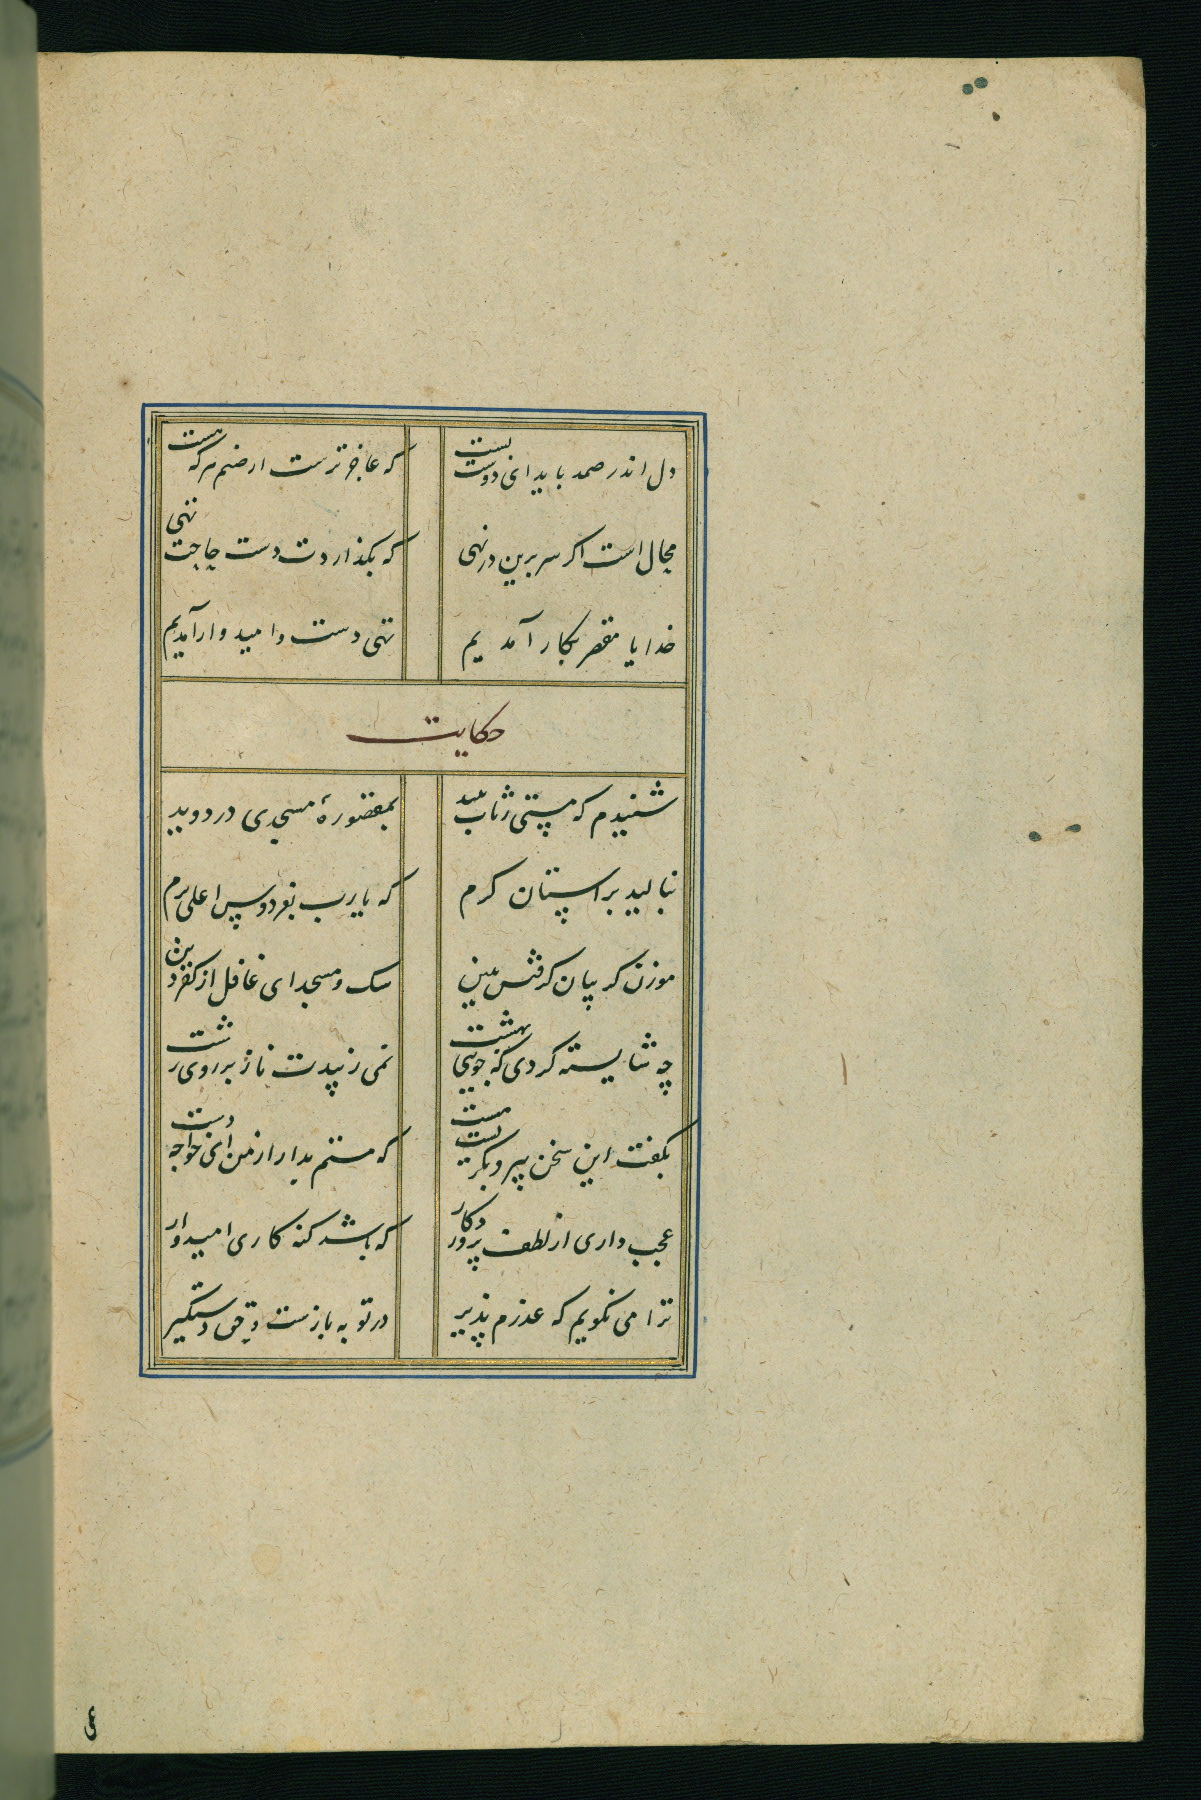 دل اندر صمد باید ای دوست بست
که عاجزترست از صنم هرکه هست
محال است اکر سر برین در نهی
که بکذاردت دست حاجت تهی
خدایا مقصر بکار آمدیم
تهی دست و امیدوار آمدیم
حکایت
شنیدم که مستی ز تاب نبید
بمقصورهٔ مسجدی در دوید
بنالید بر استان کرم
که یارب بفردوس اعلی برم
موذن کریبان کرفتش همین
سک و مسجد ای غافل از کفر و دین
چه شایسته کردی که جویی بهشت
نمی زیبدت ناز بر روی زشت
بکفت این سخن پیر و بکریست مست
که مستم بدار از من ای خواجه دست
عجب داری از لطف پروردکار
که باشد کنه کاری امیدوار
ترا می نکویم که عذرم پذیر
در توبه بازست و حق دستکیر